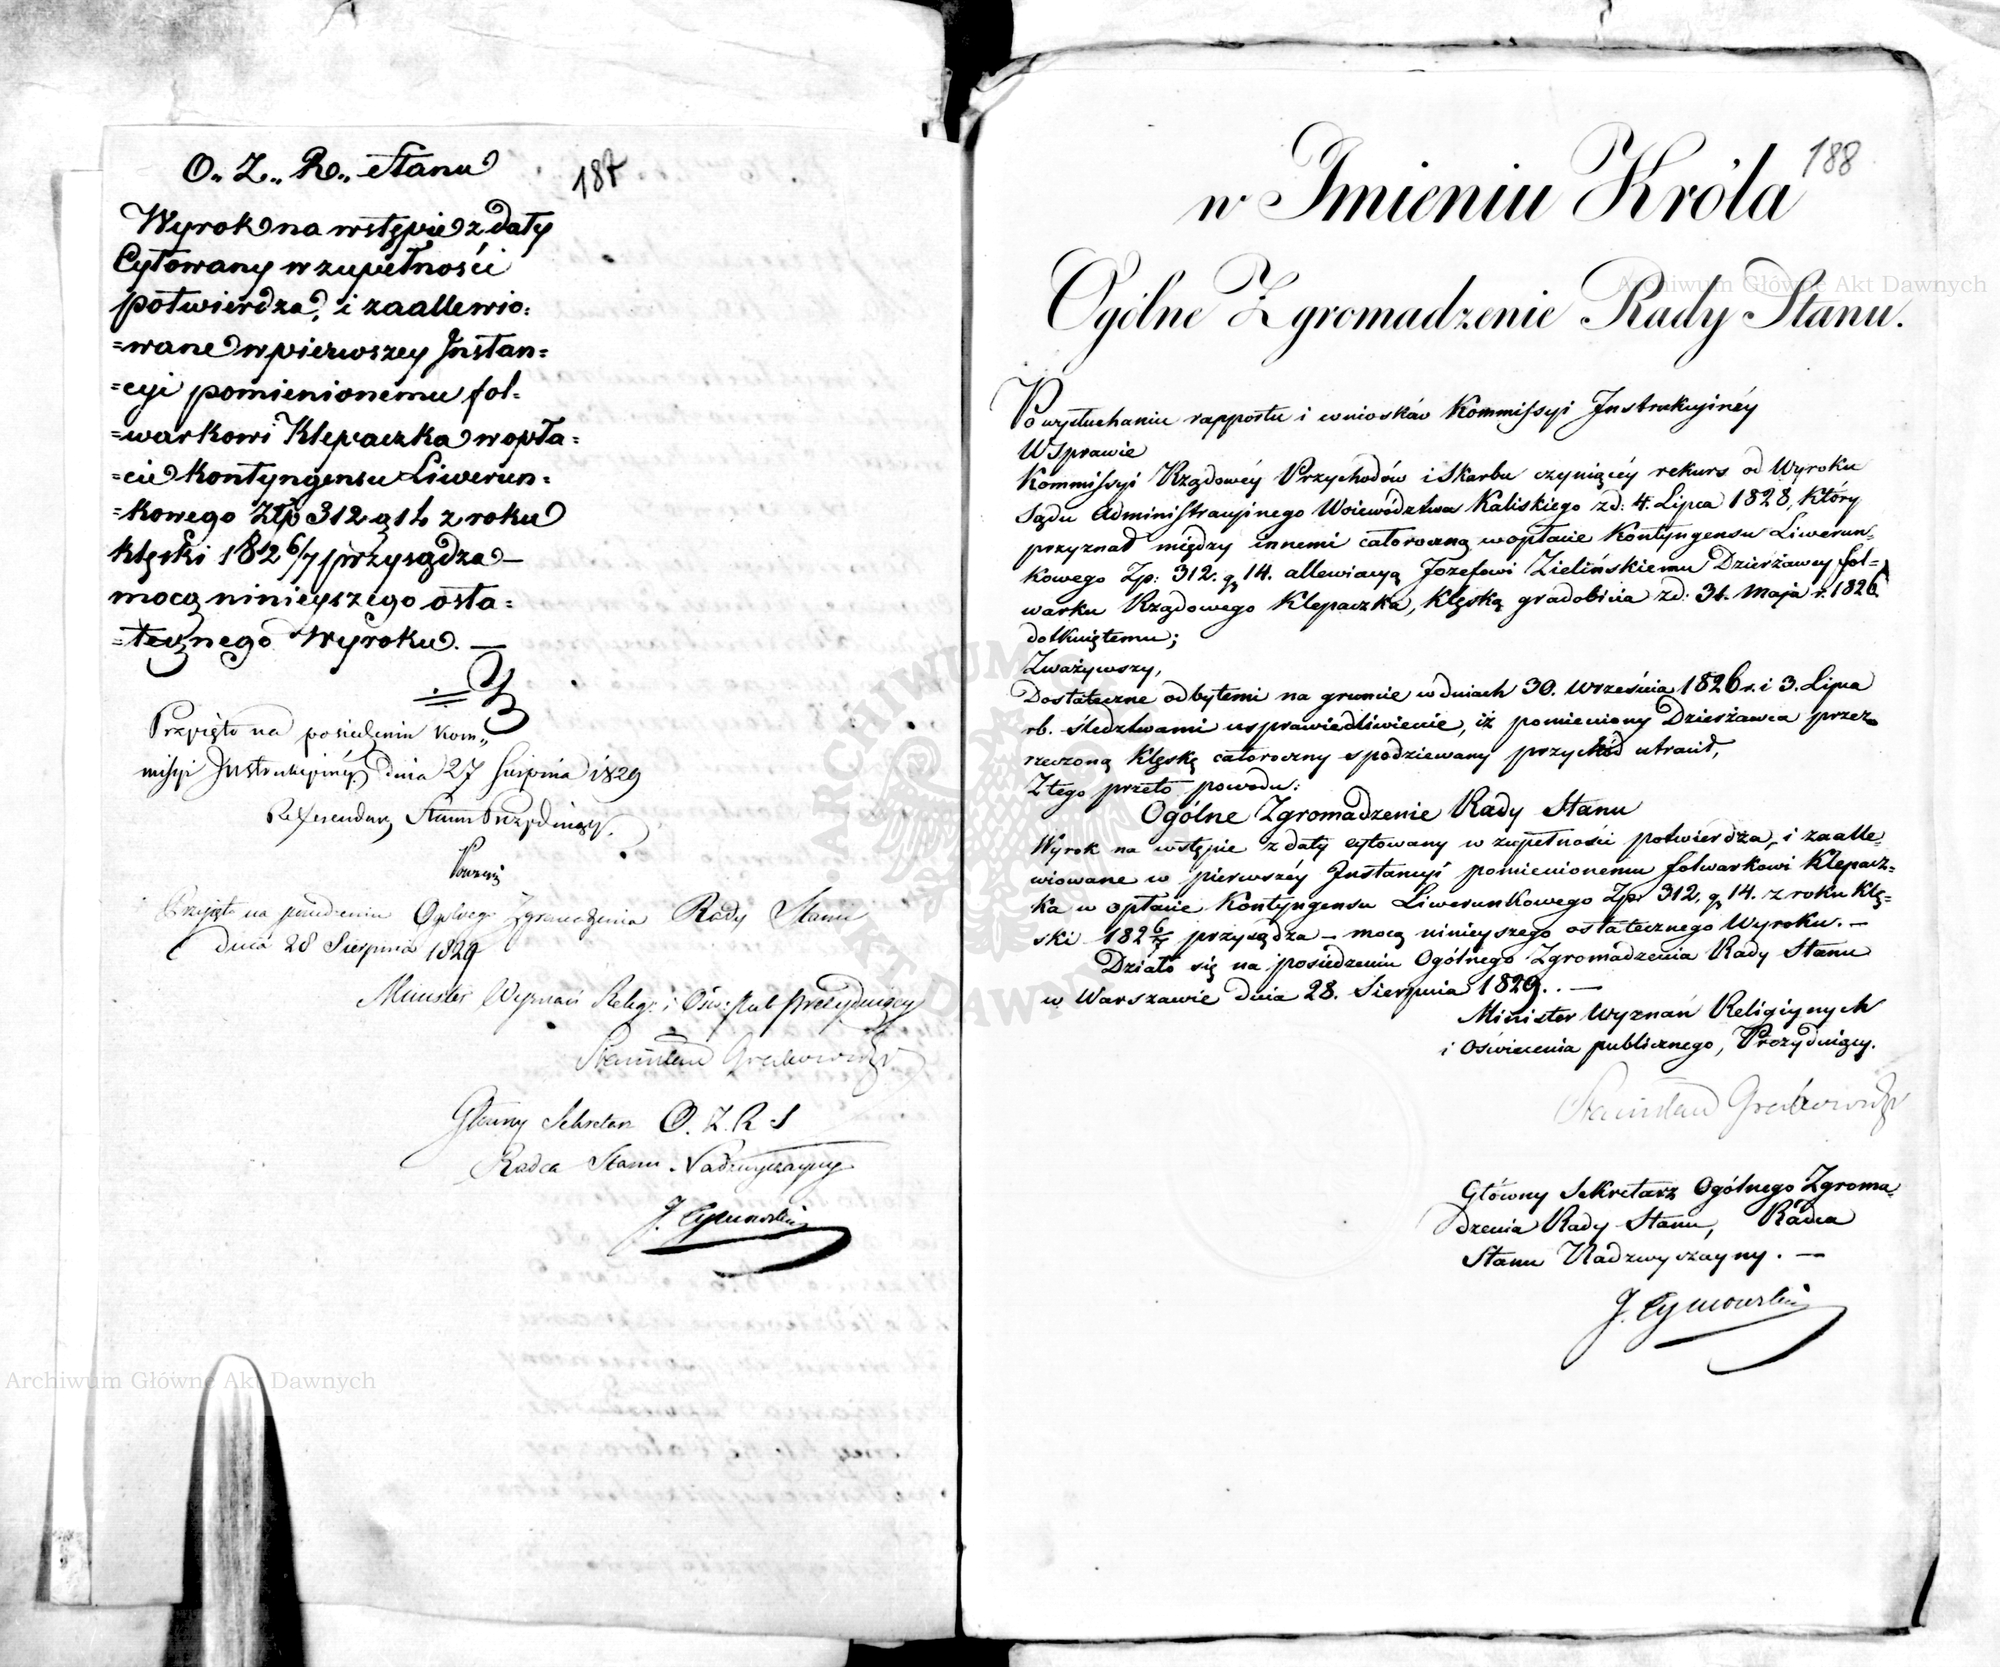 O. Z. R. Stanu
187
Wyrok na wstępie z daty
Cytowany w zupełności
potwierdza, i zaallewio=
=wane w pierwszey Instan=
=cyi pomienionemu fol=
=warkowi Klepaczka w opła=
=cie Kontyngensu Liwerun=
=kowego Złp 312 g 14 z roku
klęski 1826/7 przysądza —
mocą ninieyszego osta=
=tecznego Wyroku. —
Przyięto na posiedzeniu Kom„
missyi Instrukcyinéy dnia 27 Sierpnia 1829
Referendarz Stanu Prezyduiący.
Przyięto na posiedzeniu Ogólnego Zgromadzenia Rady Stanu
dnia 28 Sierpnia 1829
Minister Wyznań Relig: i Ośw: Pub Prezyduiący
Stanisław Grabowski
Główny Sekretarz O. Z. R. S
Radca Stanu Nadzwyczayny
J. Tymowski
188
w Imieniu Króla
Ogólne Zgromadzenie Rady Stanu.
Po wysłuchaniu rapportu i wniosków Kommissyi Instrukcyinéy
W Sprawie
Kommissyi Rządowéy Przychodów i Skarbu czyniącéy rekurs od Wyroku
Sądu Administracyinego Woiewództwa Kaliskiego z d: 4. Lipca 1828, który
przyznał między innemi całoroczną w opłacie Kontyngensu Liwerun=
kowego Zp: 312. g 14. allewiacyą Jozefowi Zielińskiemu Dzierżawcy fol=
warku Rządowego Klepaczka, klęską gradobicia z d: 31. Maja r. 1826
dotkniętemu;
Zważywszy,
Dostateczne odbytemi na gruncie w dniach 30. Września 1826 r. i 3. Lipca
rb. śledztwami usprawiedliwienie, iż pomieniony Dzierżawca przez
rzeczoną klęskę całoroczny spodziewany przychód utracił,
Z tego przeto powodu:
Ogólne Zgromadzenie Rady Stanu
Wyrok na wstępie z daty cytowany w zupełności potwierdza, i zaalle=
wiowane w pierwszéy Instancyi pomienionemu folwarkowi Klepacz=
ka w opłacie Kontyngensu Liwerunkowego Zp: 312, g 14. z roku klę=
ski 1826/7 przysądza — mocą ninieyszego ostatecznego Wyroku. —
Działo się na posiedzeniu Ogólnego Zgromadzenia Rady Stanu
w Warszawie dnia 28. Sierpnia 1829. —
Minister Wyznań Religiynych
i Oświecenia publicznego, Prezyduiący.
Stanisław Grabowski
Główny Sekretarz Ogólnego Zgroma=
dzenia Rady Stanu, Radca
Stanu Nadzwyczayny. —
J. Tymowski
Archiwum Główne Akt Dawnych
Archiwum Główne Akt Dawnych
ARCHIWUM
AKT DAWNYCH